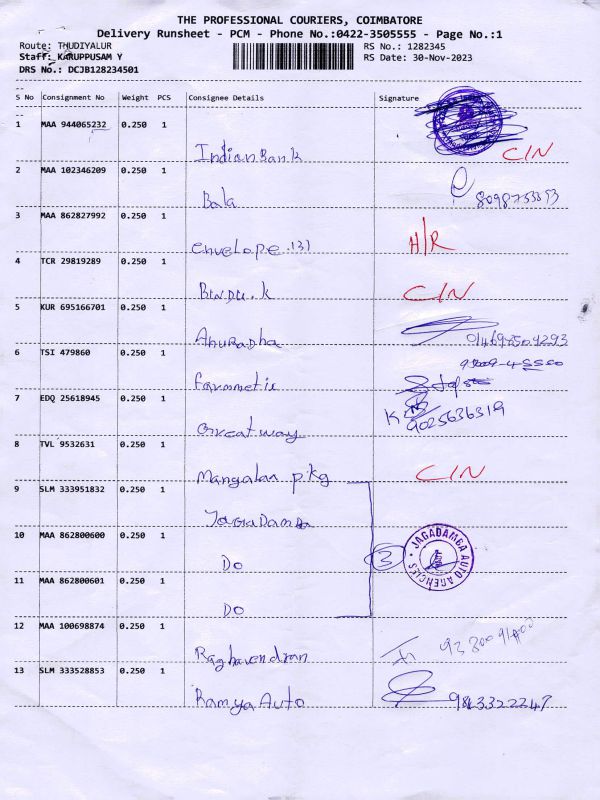 THE PROFESSIONAL COURIERS, COIMBATORE
Delivery Runsheet - PCM - Phone No.:0422-3505555 - Page No.:1
Route: THUDIYALUR
RS No.: 1282345
Staff: KARUPPUSAM Y
RS Date: 30-Nov-2023
DRS No.: DCJB128234501
S No Consignment No Weight PCS Consignee Details Signature
1 MAA 944065232 0.250 1
Indian Bank CIN
2 MAA 102346209 0.250 1
Bala
3 MAA 862827992 0.250 1
envelope .131 H/R
4 TCR 29819289 0.250 1
Bindu.k CIN
5 KUR 695166701 0.250 1
Anuradha
6 TSI 479860 0.250 1
7 EDQ 25618945 0.250 1
Great way 9025636319
8 TVL 9532631 0.250 1
Mangalan p.kg CIN
9 SLM 333951832 0.250 1
10 MAA 862800600 0.250 1
Do 3 JAGADAMBA AUTO AGENCIES
11 MAA 862800601 0.250 1
Do
12 MAA 100698874 0.250 1
Raghavendran
13 SLM 333528853 0.250 1
Ramya Auto 9843322247